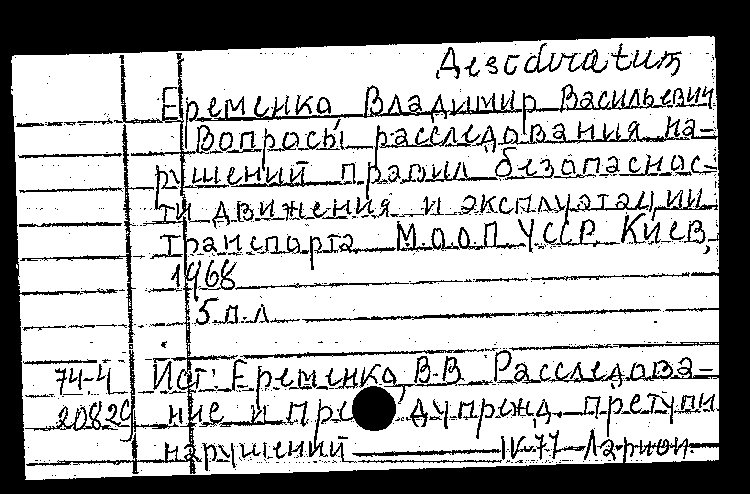 Desideratum
Еременко, Владимир Васильевич
Вопросы расследования на-
рушений правил безопаснос-
ти движения и эксплуатации
транспорта М.О.О.П. УССР. Киев,
1968
5 п.л
74-4 Ист: Еременко, В.В Расследова-
20829 ние и предупрежд. преступн
нарушений IV-77 Ларион.